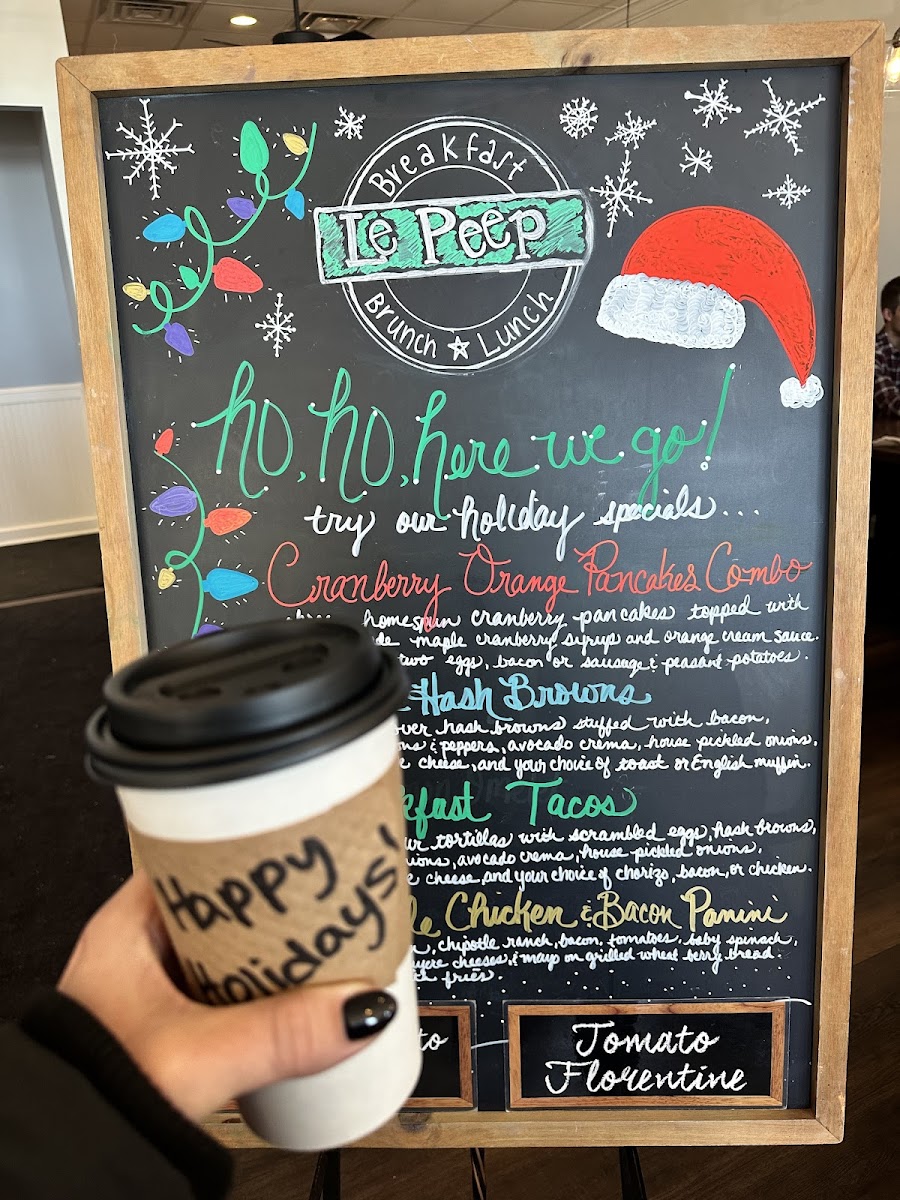 Breakfast
Le Peep
Brunch ☆ Lunch
ho, ho, here we go!
try our holiday specials...
Cranberry Orange Pancakes Combo
homespun cranberry pancakes topped with
maple cranberry syrup and orange cream sauce.
two eggs, bacon or sausage & peasant potatoes.
Hash Browns
over hash browns stuffed with bacon,
& peppers, avocado crema, house pickled onions,
cheese, and your choice of toast or English muffin.
Tacos
tortillas with scrambled eggs, hash browns,
avocado crema, house pickled onions,
cheese, and your choice of chorizo, bacon, or chicken.
Chicken & Bacon Panini
chipotle ranch, bacon, tomatoes, baby spinach,
cheeses, & mayo on grilled wheat berry bread.
fries.
Tomato
Florentine
Happy
Holidays!